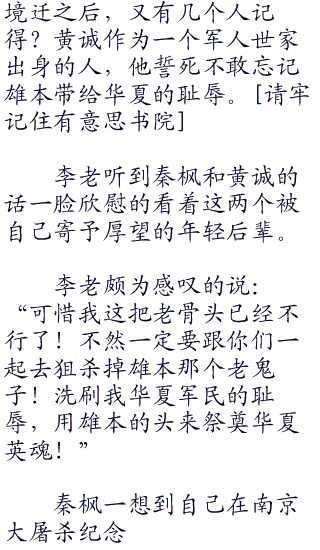 境迁之后，又有几个人记
得？黄诚作为一个军人世家
出身的人，他誓死不敢忘记
雄本带给华夏的耻辱。[请牢
记住有意思书院]
李老听到秦枫和黄诚的
话一脸欣慰的看着这两个被
自己寄予厚望的年轻后辈。
李老颇为感叹的说：
“可惜我这把老骨头已经不
行了！不然一定要跟你们一
起去狙杀掉雄本那个老鬼
子！洗刷我华夏军民的耻
辱，用雄本的头来祭奠华夏
英魂！”
秦枫一想到自己在南京
大屠杀纪念